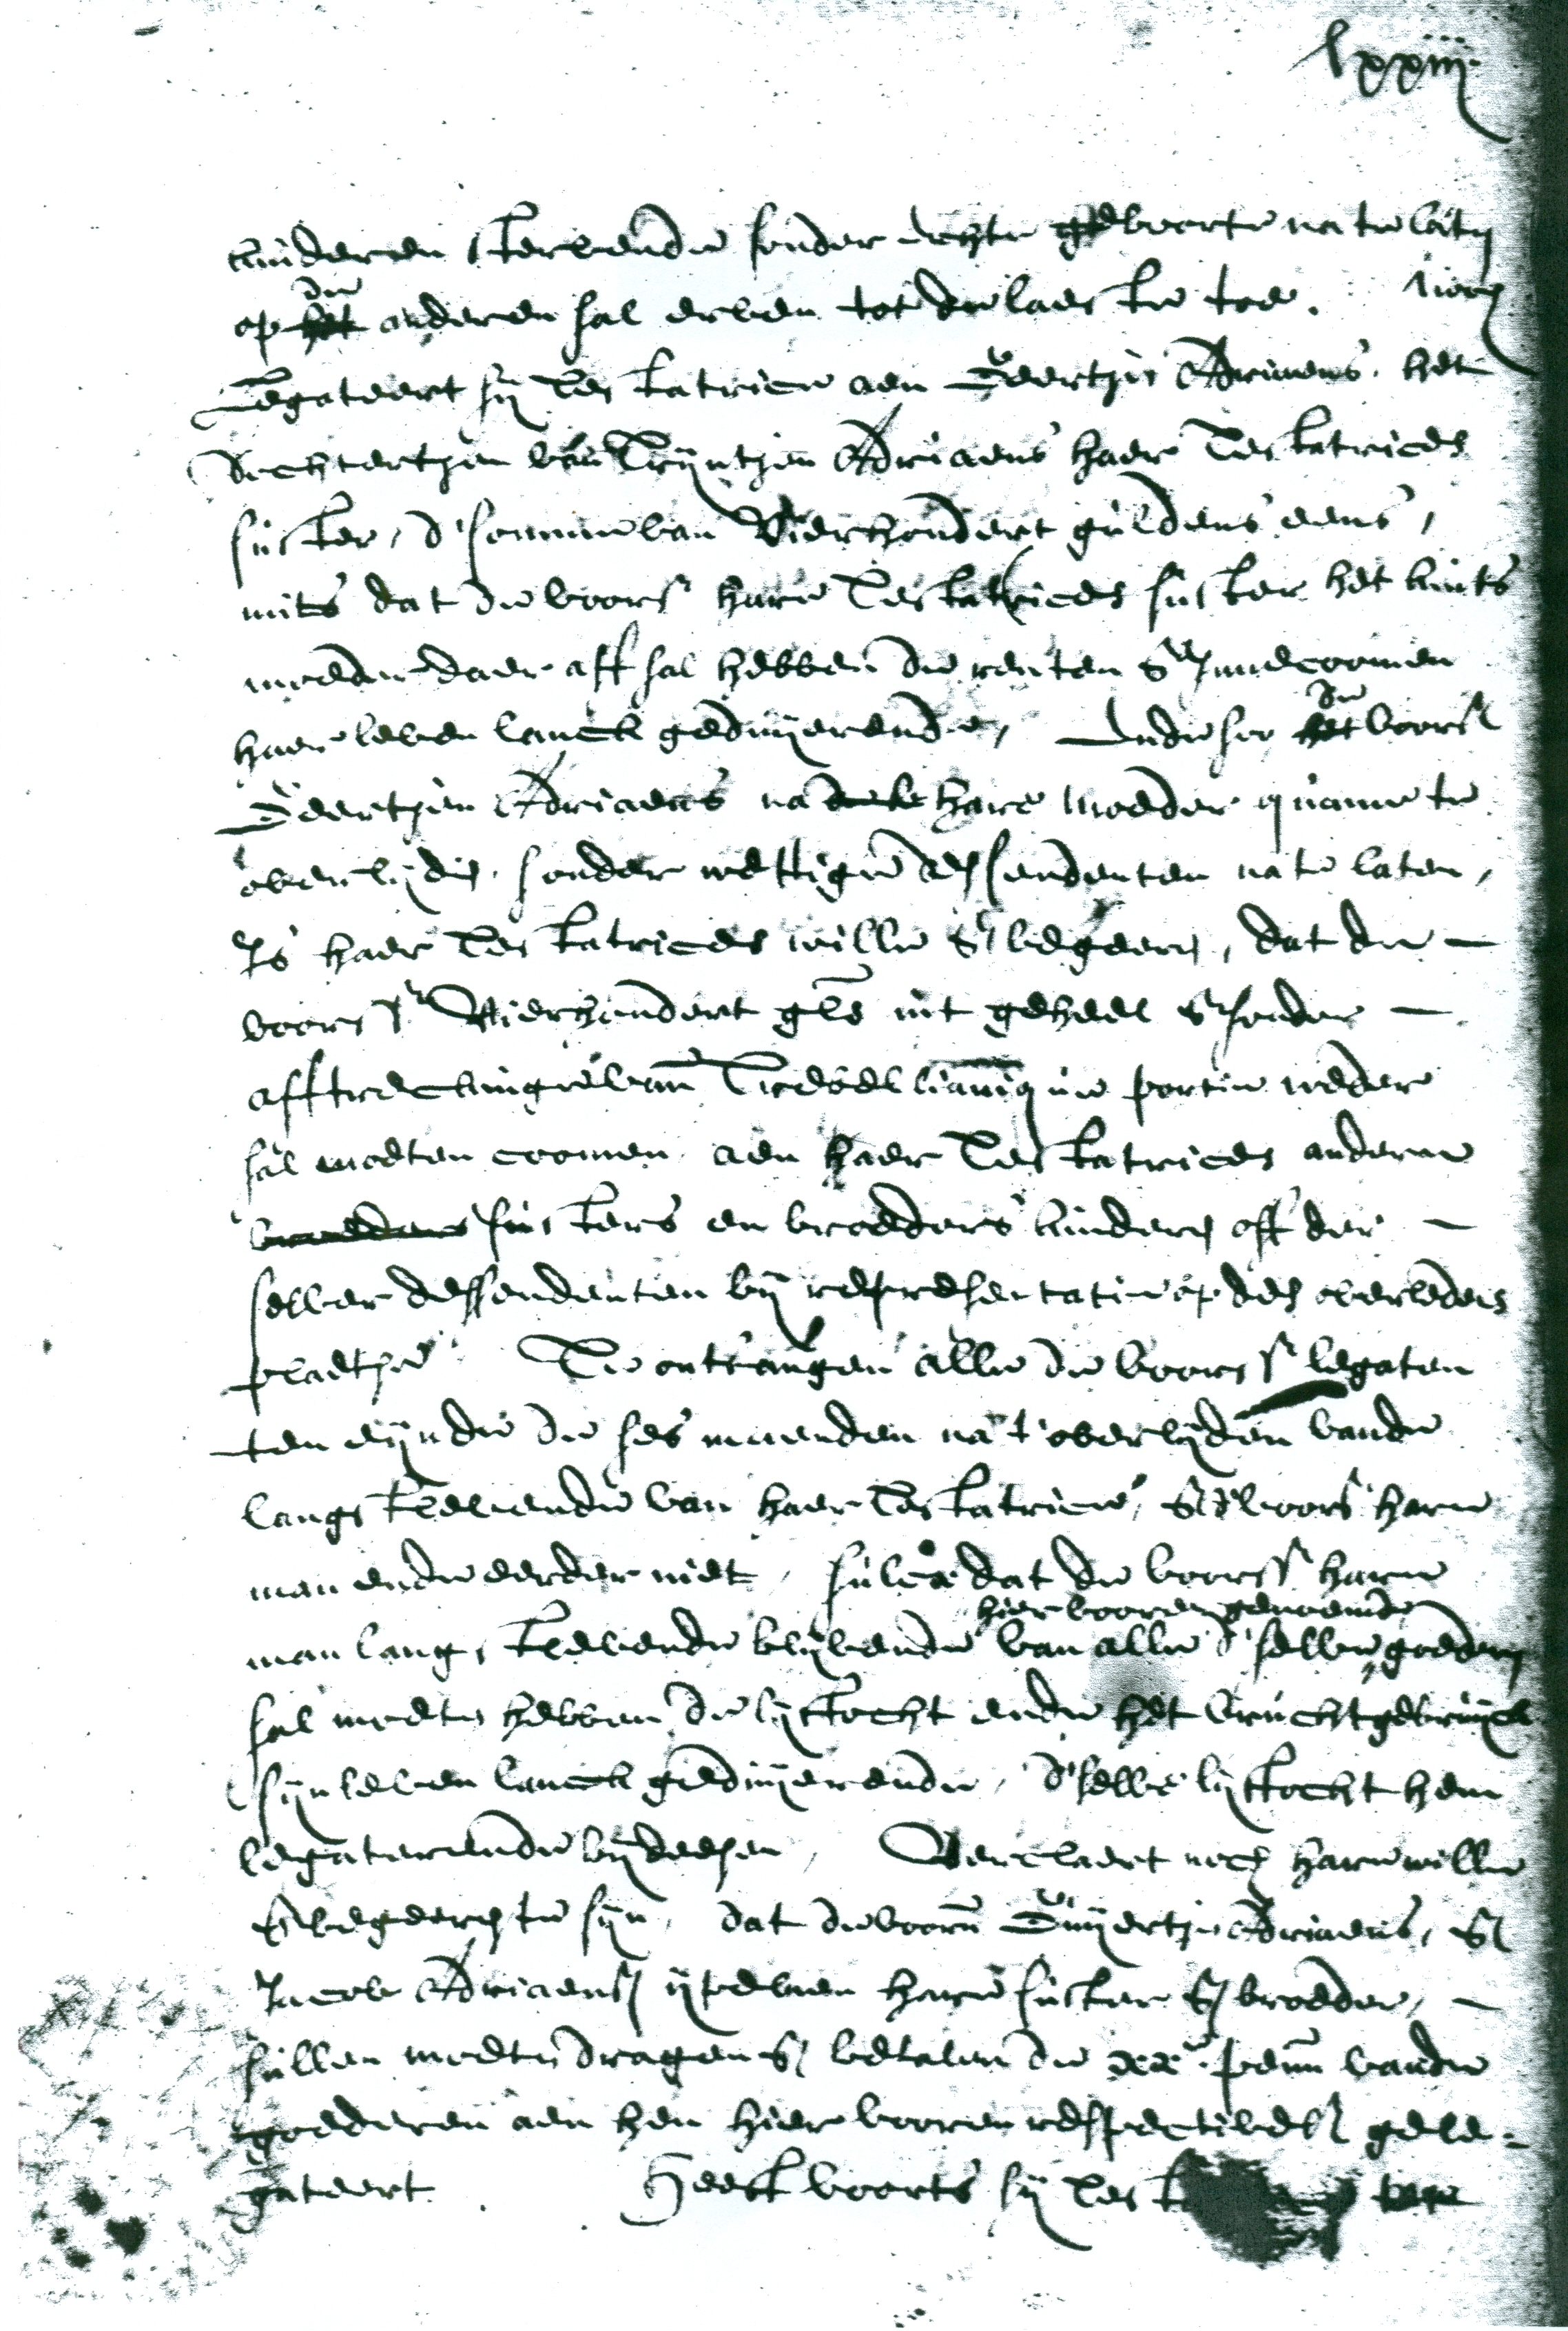 lxxiiij
kinderen stervende sonder echte geboorte na te laten
de
op het anderen sal erven tot de laeste toe. Noch
Legateert sij Testatrice aen Geertgen Adriaens het
dochtertgen van Trijntgen Adriaens haer Testatrices
suster, d'somme van Vierhondert guldens eens,
mits dat de voors hare Testatrices suster het kints
moeder daer aff sal hebben de renten en incoomen
haer leven lanck geduijerende, Ende soo
de
het voors
Geertgen Adriaens na hare moeder quame te
overlijden, sonder wettige dessendenten na te laten,
Is haer Testatrices wille en begeeren, dat de
voorss Vierhondert gls int geheel en sonder
afftreckinge van Trebellianique portie weder
sal moeten coomen aen haer Testatrices andere
broeders susters en broeders kinderen off der
selver dessendenten bij representatie op des overledens
plaetse. Te ontfangen alle de voorss legaten
ten eijnde de ses maenden na t'overlijden vande
langstlevende van haer Testatrice, en d'voors hare
man ende eerder niet, sulcx dat de voorss hare
hier vooren genoemde
man langstlevende blijvende van alle d'selve goederen
sal moeten hebben de lijftocht ende het vruchtgebruijck
sijn leven lanck geduijerende, d'selve lijftocht hem
legaterende bij desen, Verclaert noch hare wille
en begeeren te sijn, dat de voorn Duijertje Adriaens, en
Jacob Adriaensz ijpelaen hare suster en broeder,
sullen moeten dragen en betalen de xxe penn vande
goederen aen hen hier vooren respectivel gele-
gateert. Heeft voorts sij